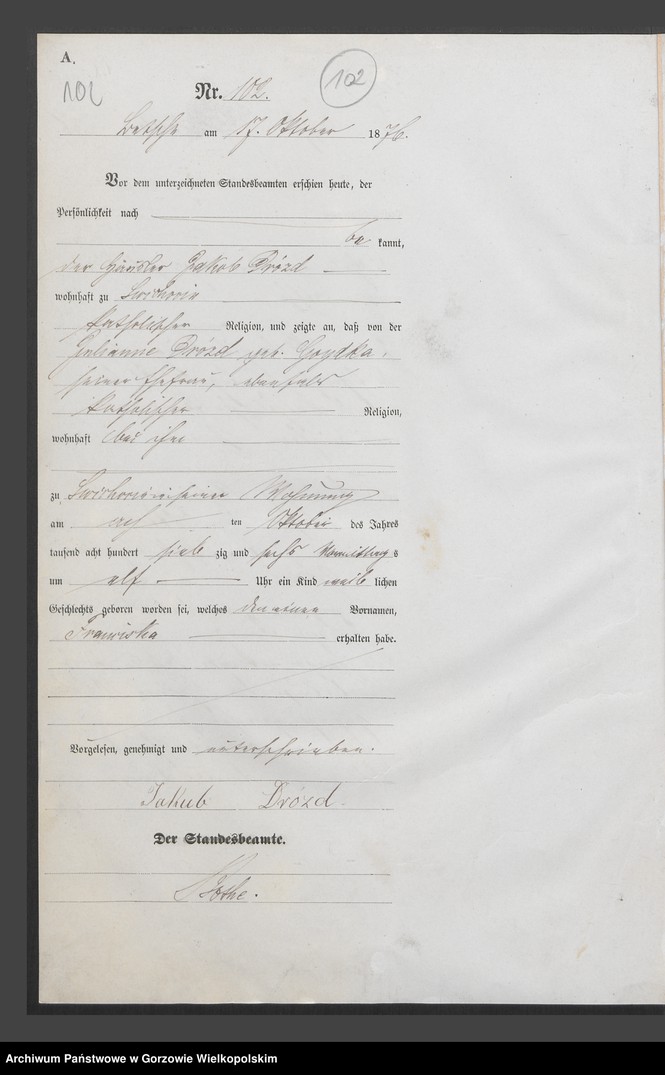 A.
102
Nr. 102.
102
Betsche am 17. Oktober 1876.
Vor dem unterzeichneten Standesbeamten erschien heute, der
Persönlichkeit nach
be kannt,
der Häusler Jakob Drózd
wohnhaft zu
katholischer Religion, und zeigte an, daß von der
Julianne Drózd geb.
seiner Ehefrau, ebenfalls
katholischer Religion,
wohnhaft bei ihm
zu in seiner Wohnung
am ten Oktober des Jahres
tausend acht hundert sieb zig und sechs Vormittag s
um elf Uhr ein Kind weib lichen
Geschlechts geboren worden sei, welches den einen Vornamen,
Franciska erhalten habe.
Vorgelesen, genehmigt und unterschrieben.
Jakub Drózd.
Der Standesbeamte.
Archiwum Państwowe w Gorzowie Wielkopolskim